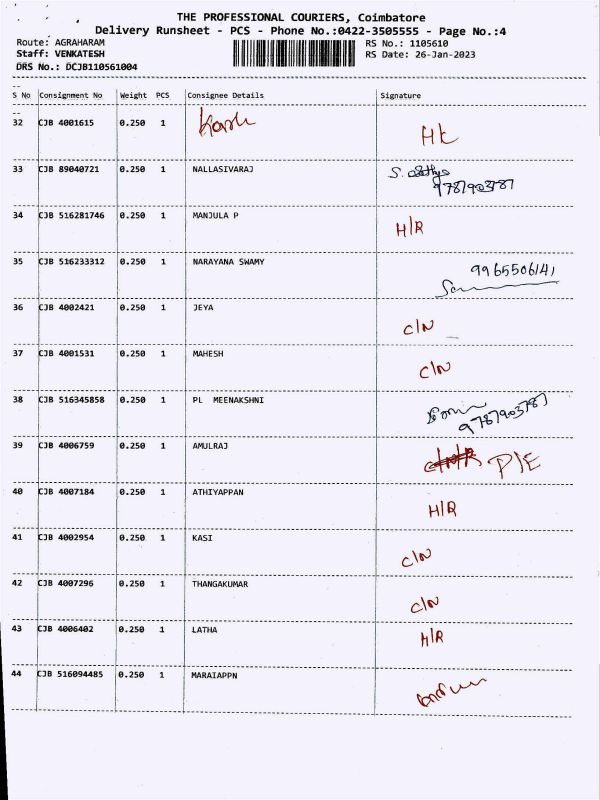 THE PROFESSIONAL COURIERS, Coimbatore
Delivery Runsheet - PCS - Phone No.:0422-3505555 - Page No.:4
Route: AGRAHARAM RS No.: 1105610
Staff: VENKATESH RS Date: 26-Jan-2023
DRS No.: DCJB110561004
S No Consignment No Weight PCS Consignee Details Signature
32 CJB 4001615 0.250 1
33 CJB 89040721 0.250 1 NALLASIVARAJ S.
9787903787
34 CJB 516281746 0.250 1 MANJULA P H/R
35 CJB 516233312 0.250 1 NARAYANA SWAMY 9965506141
36 CJB 4002421 0.250 1 JEYA C/N
37 CJB 4001531 0.250 1 MAHESH C/N
38 CJB 516345858 0.250 1 PL MEENAKSHNI
9787903787
39 CJB 4006759 0.250 1 AMULRAJ P/E
40 CJB 4007184 0.250 1 ATHIYAPPAN H/R
41 CJB 4002954 0.250 1 KASI C/N
42 CJB 4007296 0.250 1 THANGAKUMAR C/N
43 CJB 4006402 0.250 1 LATHA H/R
44 CJB 516094485 0.250 1 MARAIAPPN